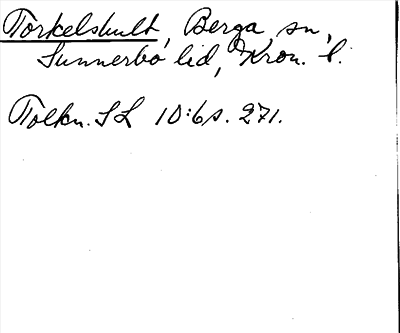 Torkelshult, Berga sn,
Sunnerbo hd, Kron. l.
Tolkn. SL 10:6 s. 271.